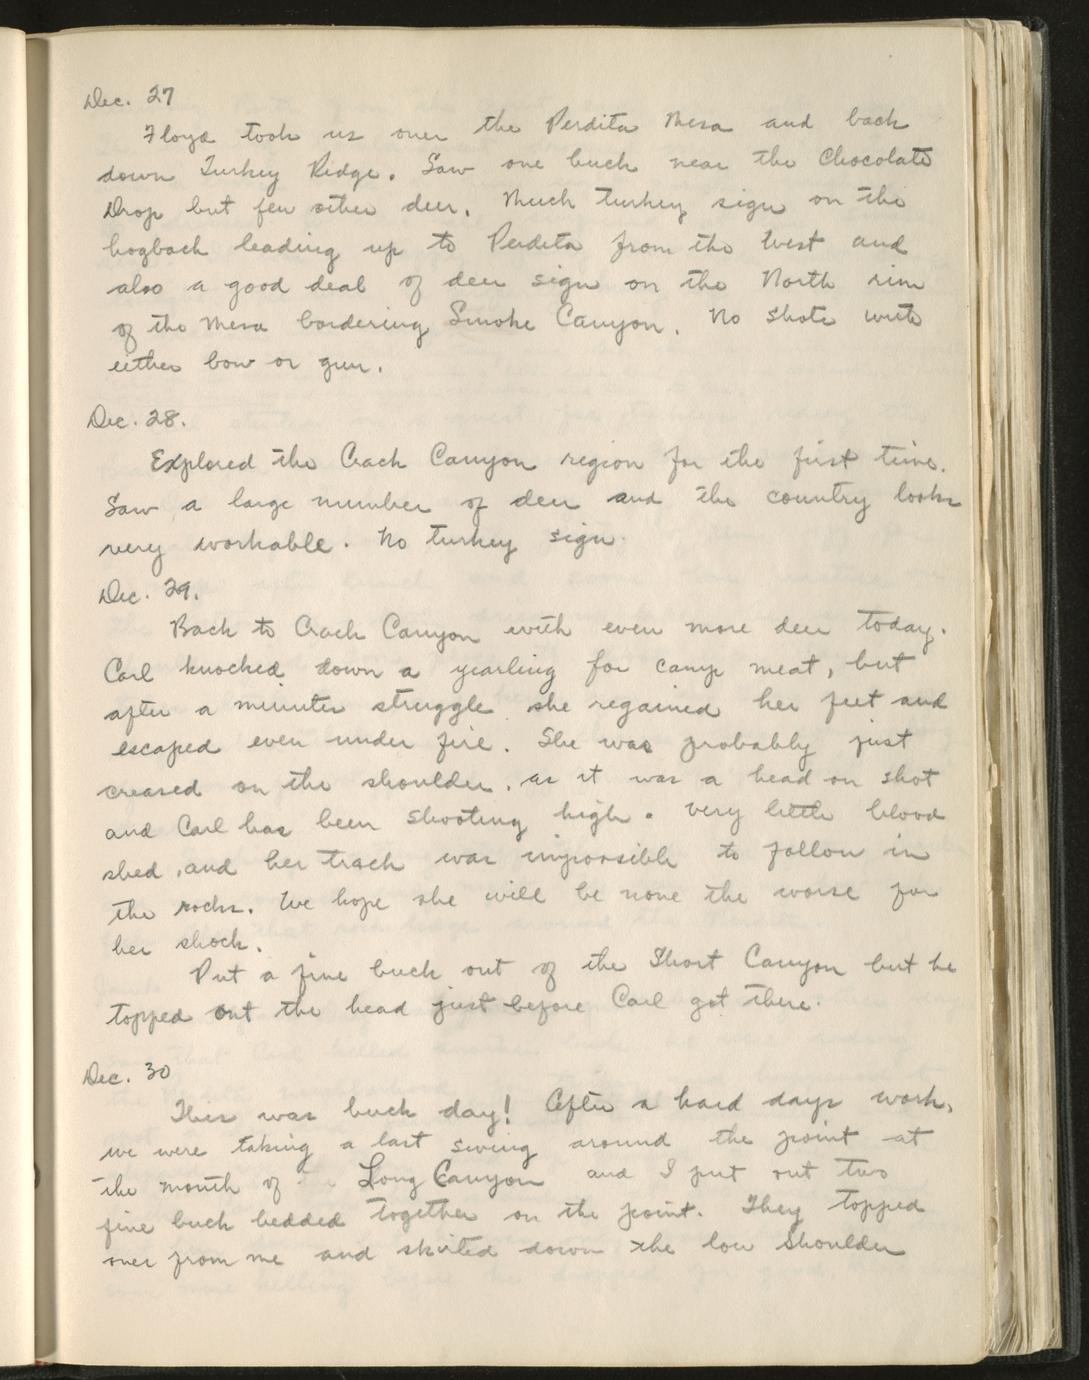 Dec. 27
Floyd took us over the Perdita Mesa and back
down Turkey Ridge. Saw one buck near the Chocolate
Drop but few other deer. Much turkey sign on the
hogback leading up to Perdita from the West and
also a good deal of deer sign on the North rim
of the Mesa bordering Smoke Canyon. No shots with
either bow or gun.
Dec. 28.
Explored the Crack Canyon region for the first time.
Saw a large number of deer and the country looks
very workable. No turkey sign.
Dec. 29.
Back to Crack Canyon with even more deer today.
Carl knocked down a yearling for camp meat, but
after a minutes struggle she regained her feet and
escaped even under fire. She was probably just
creased on the shoulder, as it was a head on shot
and Carl has been shooting high. Very little blood
shed, and her track was impossible to follow in
the rocks. We hope she will be none the worse for
her shock.
Put a fine buck out of the Short Canyon but he
topped out the head just before Carl got there.
Dec. 30
This was buck day! After a hard days work,
we were taking a last swing around the point at
the mouth of Long Canyon and I put out two
fine buck bedded together on the point. They topped
over from me and skirted down the low shoulder